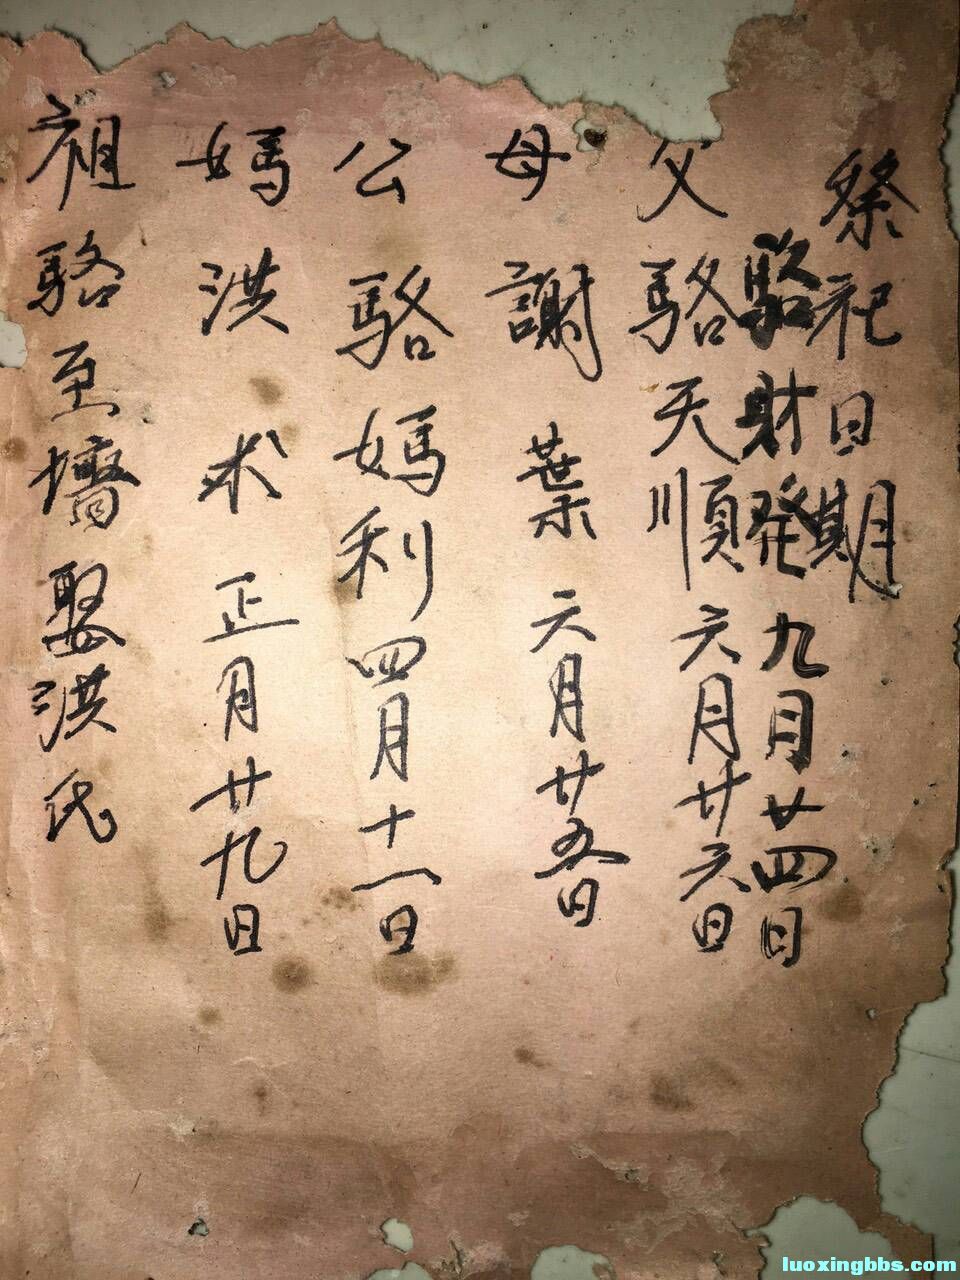 祭祀日期
駱財発九月廿四日
父駱天順六月廿六日
母謝葉六月廿五日
公駱媽利四月十一日
媽洪求正月廿九日
祖駱至墻娶洪氏
luoxingbbs.com